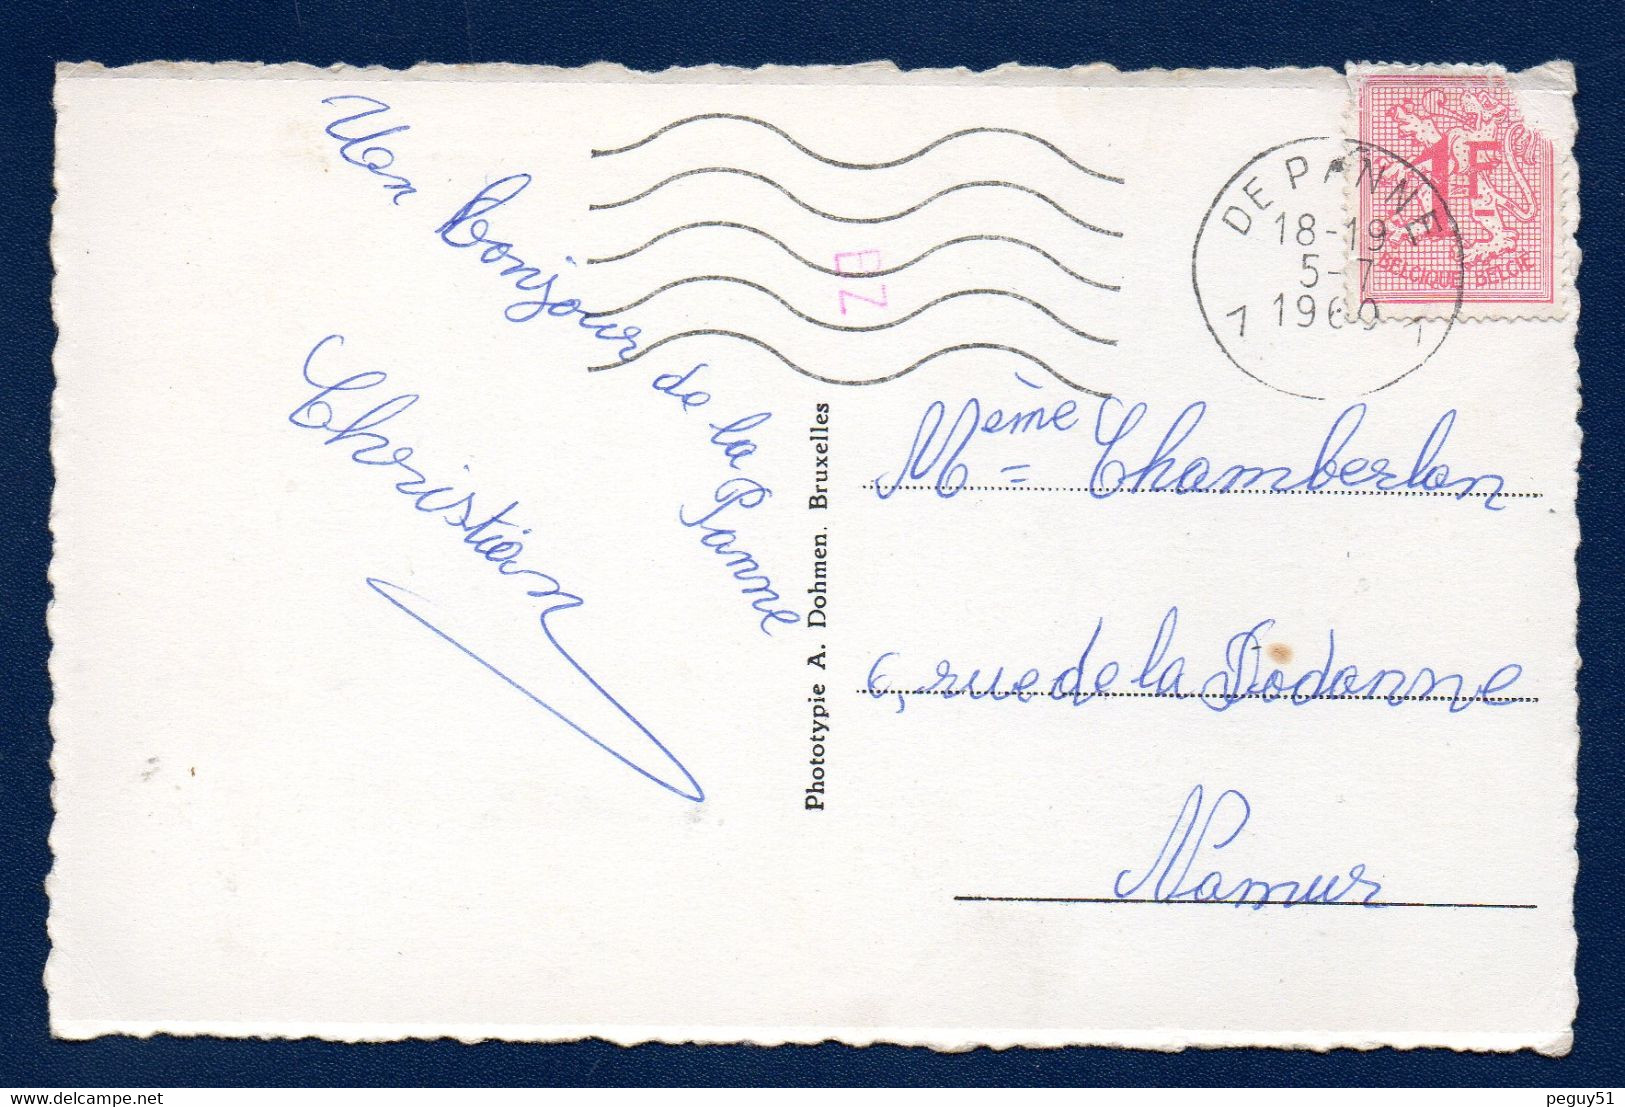 Un bonjour de la Panne
Christian
Phototypie A. Dohmen. Bruxelles
EZ
DE PANNE
18-19
5-7
1960
1 1
1F
BELGIQUE-BELGIE
Mème = Chamberlan
6, rue de la Dodanne
Namur
www.delcampe.net
peguy51